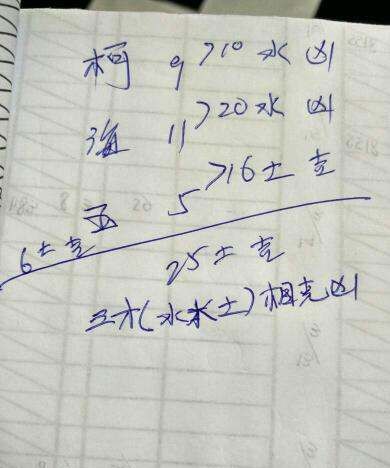 柯 9 >10 水 凶
海 11 >20 水 凶
玉 5 >16 土 吉
6土吉 25土吉
三才(水水土)相克凶